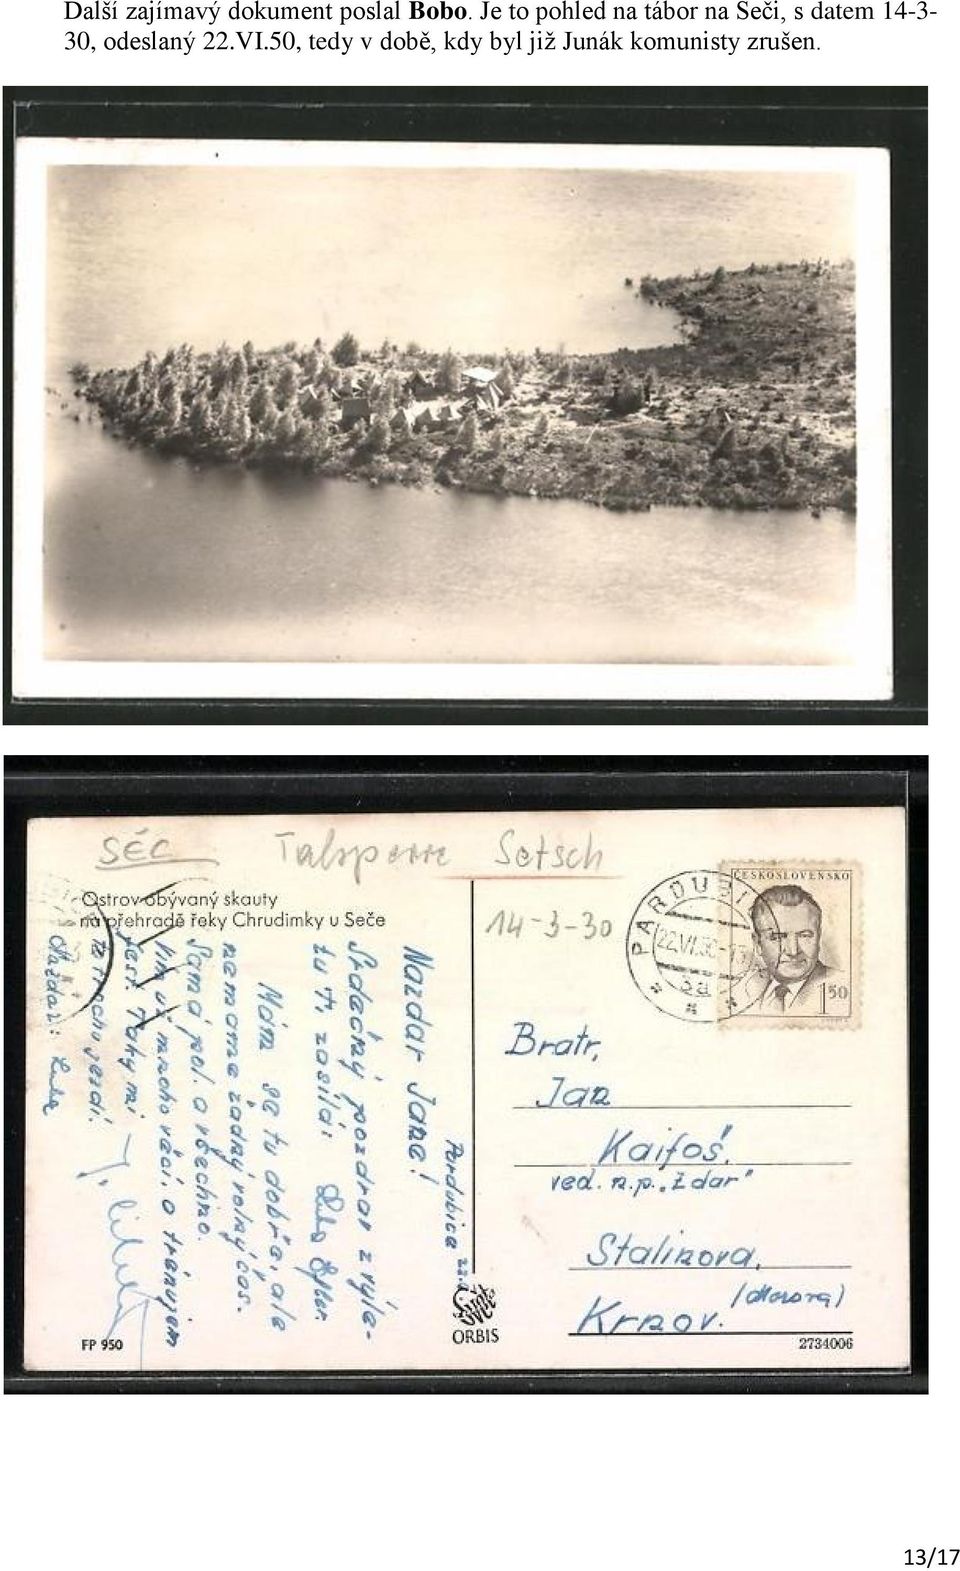 Další zajímavý dokument poslal Bobo. Je to pohled na tábor na Seči, s datem 14-3-
30, odeslaný 22.VI.50, tedy v době, kdy byl již Junák komunisty zrušen.
SEČ Talsperre Setsch
Ostrov obývaný skauty
na přehradě řeky Chrudimky u Seče
14-3-30
PARDUBI
22.VI.50
ČESKOSLOVENSKO
1 50
Nazdar Jane!
Srdečný pozdrav z výle-
tu ti zasílá: Luba
Mám se tu dobře, ale
nemáme žádný volný čas.
Samá pol. a všechno.
Vím už mnoho věcí, o
Nazdar: Luba
Pardubice 22.
Bratr,
Jan
Kaifoš.
ved. n.p. „Ždar"
Stalinova.
Krnov. (Morava)
FP 950
ORBIS
2734006
13/17